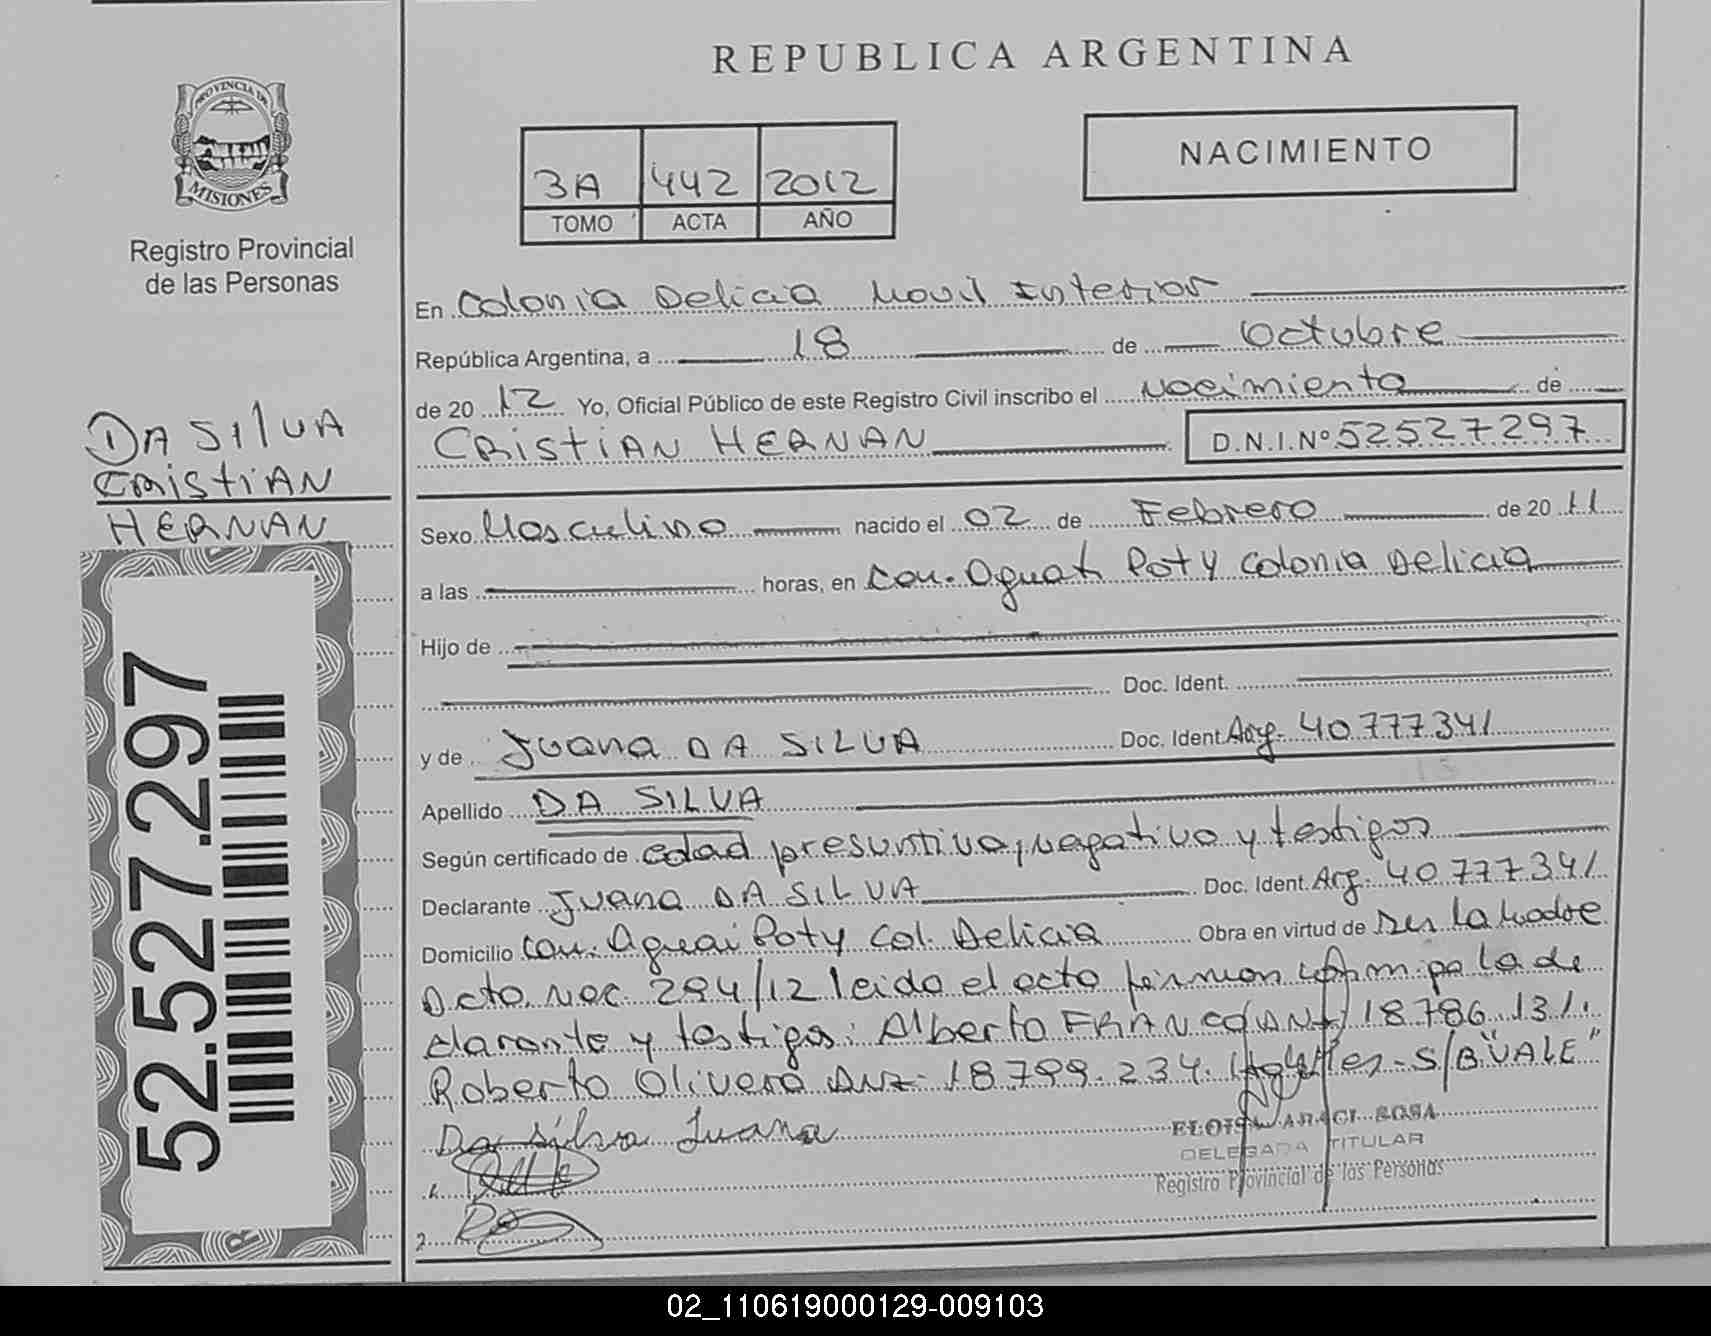 REPUBLICA ARGENTINA
NACIMIENTO
3A 442 2012
TOMO ACTA AÑO
PROVINCIA DE
MISIONES
Registro Provincial
de las Personas
DA SILVA
CRISTIAN
HERNAN
52.527.297
En Colonia Delicia Movil Interior
República Argentina, a 18 de Octubre
de 20 12 Yo, Oficial Público de este Registro Civil inscribo el Nacimiento de
CRISTIAN HERNAN D.N.I.Nº 52527297
Sexo Masculino nacido el 02 de Febrero de 20 11
a las horas, en Com. Aguai Poty Colonia Delicia
Hijo de
Doc. Ident.
y de Juana DA SILVA Doc. Ident. Arg. 40.777.341
Apellido DA SILVA
Según certificado de edad presuntiva, negativo y testigos
Declarante Juana DA SILVA Doc. Ident. Arg. 40.777.341
Domicilio Com. Aguai Poty Col. Delicia Obra en virtud de Ser la Madre
Acto. Nac. 294/12 leido el acto firman conmigo la de
clarante y testigos: Alberto FRANCO 18.786.131.
Roberto Olivera DNI- 18.799.234. S/B "VALE"
Da Silva Juana
ELOISA ARACI SOSA
DELEGADA TITULAR
Registro Provincial de las Personas
1.
2.
02_110619000129-009103